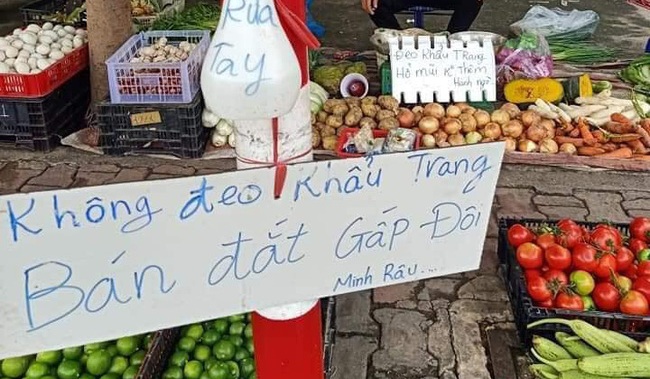 Rửa
Tay
Đeo Khẩu Trang
Hở mũi K° Thèm
Hành ngò
Không đeo Khẩu Trang
Bán đắt Gấp Đôi
Minh Râu...